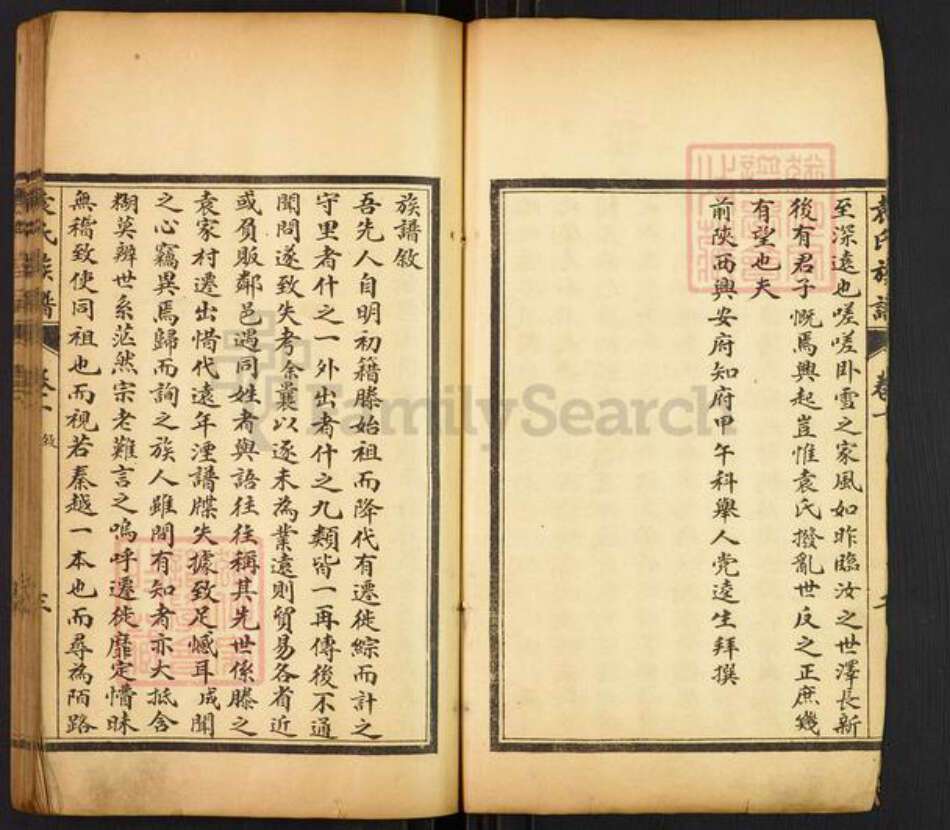 至深遠也嗟嗟卧雪之家風如昨臨汝之世澤長新
後有君子慨焉興起豈惟袁氏撥亂世反之正庶幾
有望也夫
前陝西興安府知府甲午科舉人党逵生拜撰
袁氏族譜 卷一
族譜敘
吾先人自明初籍滕始祖而降代有遷徙綜而計之
守里者什之一外出者什之九類皆一再傳後不通
聞問遂致失考余曩以逐末為業遠則貿易各省近
或負販鄰邑遇同姓者與語往往稱其先世係滕之
袁家村遷出惜代遠年湮譜牒失據致足憾耳成聞
之心竊異焉歸而詢之族人雖間有知者亦大抵含
糊莫辨世系茫然宗老難言之嗚呼遷徙靡定懵昧
無稽致使同祖也而視若秦越一本也而尋為陌路
袁氏族譜 卷一 敘
FamilySearch